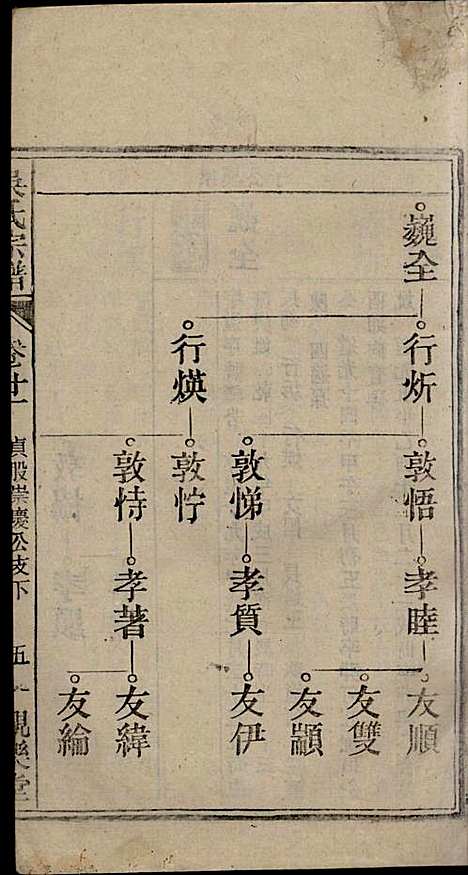 巍全
行炘
行煐
敦悟
敦悌
敦忊
敦恃
孝睦
孝質
孝著
友順
友雙
友顓
友伊
友緯
友綸
吳氏宗譜
卷廿一
貞股崇慶公支下
五
覲樂堂